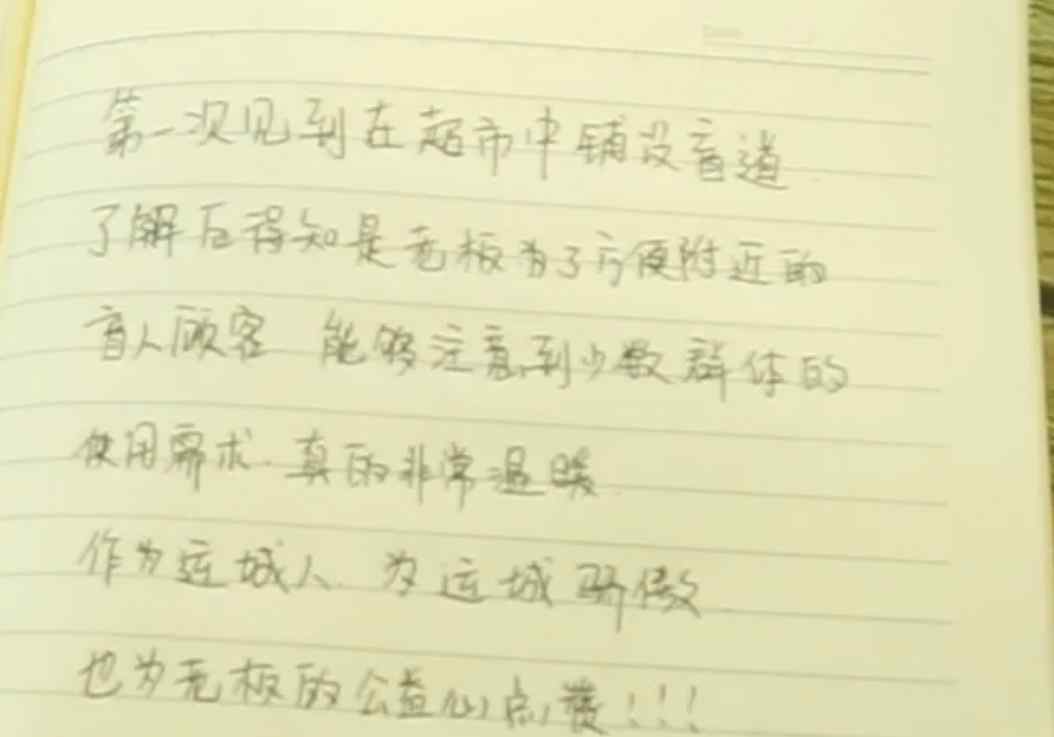 Date
第一次见到在超市中铺设盲道
了解后得知是老板为了方便附近的
盲人顾客 能够注意到少数群体的
使用需求.真的非常温暖.
作为运城人.为运城骄傲.
也为老板的公益心点赞!!!